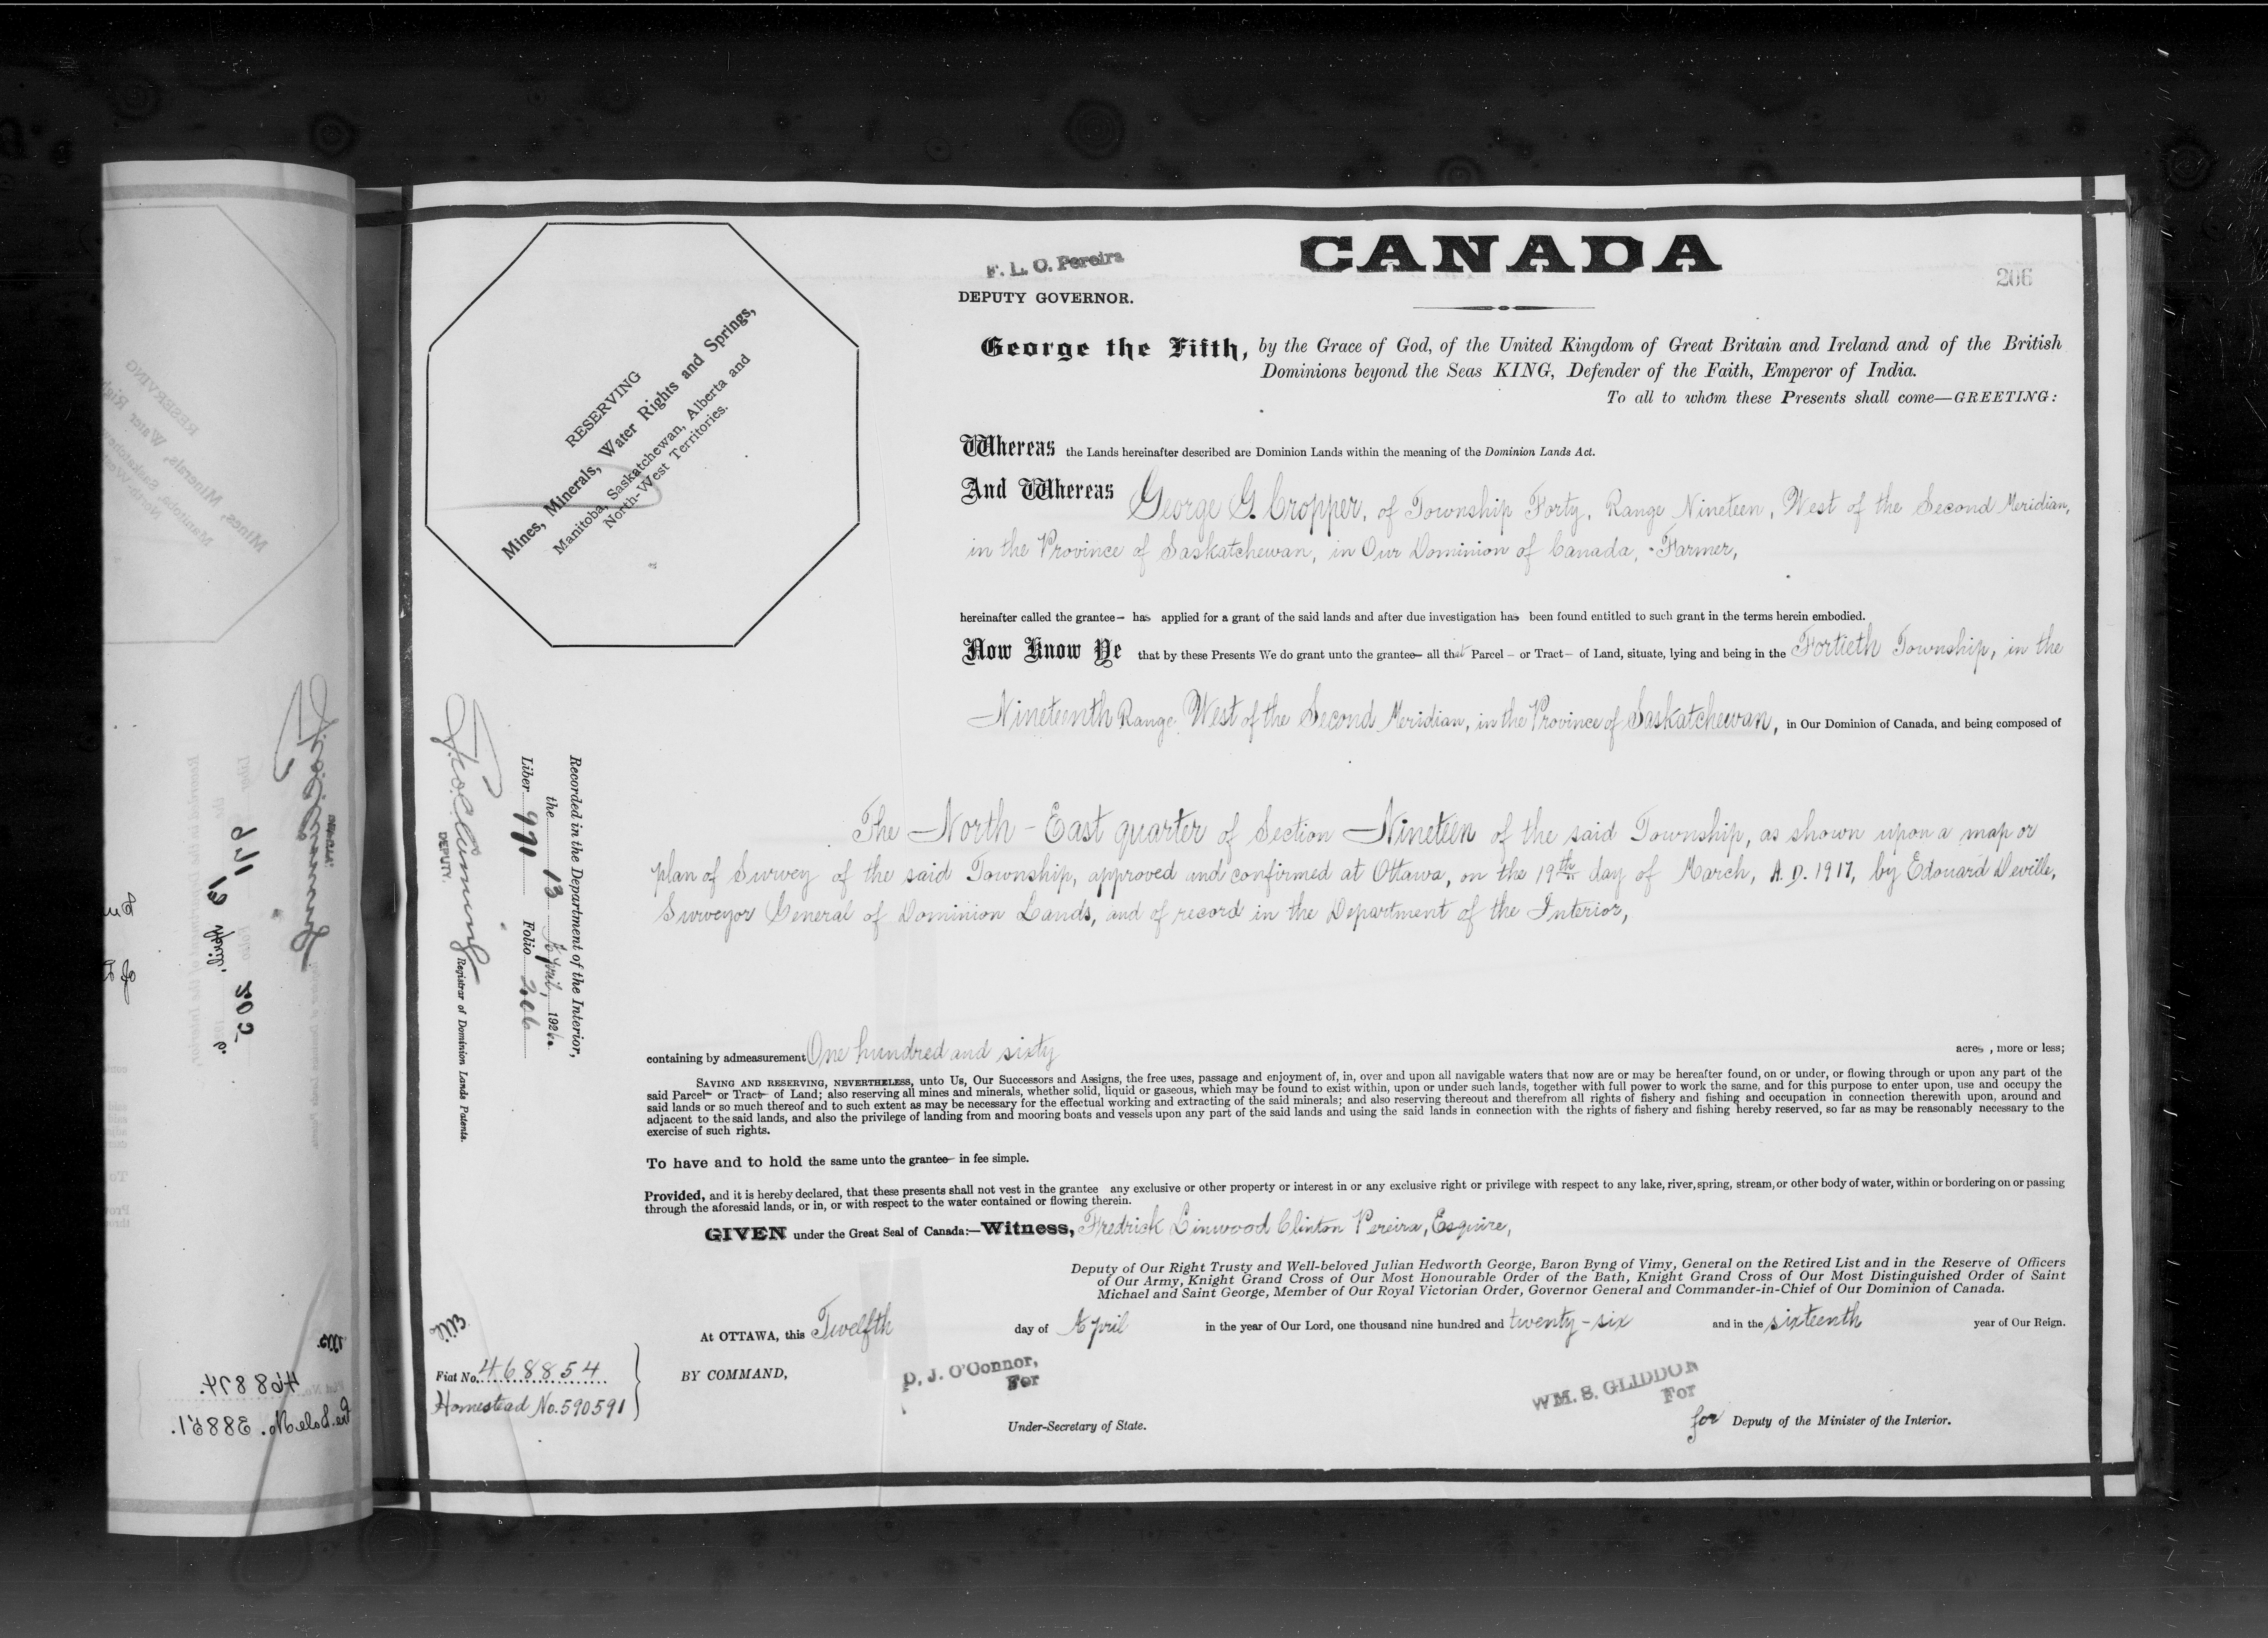 CANADA
206
F. L. C. Pereira
DEPUTY GOVERNOR.
George the Fifth, by the Grace of God, of the United Kingdom of Great Britain and Ireland and of the British
Dominions beyond the Seas KING, Defender of the Faith, Emperor of India.
To all to whom these Presents shall come—GREETING:
RESERVING
Mines, Minerals, Water Rights and Springs,
Manitoba, Saskatchewan, Alberta and
North-West Territories.
Whereas the Lands hereinafter described are Dominion Lands within the meaning of the Dominion Lands Act.
And Whereas George G. Cropper, of Township Forty, Range Nineteen, West of the Second Meridian,
in the Province of Saskatchewan, in Our Dominion of Canada, Farmer,
hereinafter called the grantee— has applied for a grant of the said lands and after due investigation has been found entitled to such grant in the terms herein embodied.
Now Know Ye that by these Presents We do grant unto the grantee— all that Parcel — or Tract— of Land, situate, lying and being in the Fortieth Township, in the
Nineteenth Range West of the Second Meridian, in the Province of Saskatchewan, in Our Dominion of Canada, and being composed of
The North-East quarter of Section Nineteen of the said Township, as shown upon a map or
plan of Survey of the said Township, approved and confirmed at Ottawa, on the 19th day of March, A.D. 1917, by Edouard Deville,
Surveyor General of Dominion Lands, and of record in the Department of the Interior,
containing by admeasurement One hundred and sixty acres, more or less;
SAVING AND RESERVING, NEVERTHELESS, unto Us, Our Successors and Assigns, the free uses, passage and enjoyment of, in, over and upon all navigable waters that now are or may be hereafter found, on or under, or flowing through or upon any part of the
said Parcel— or Tract— of Land; also reserving all mines and minerals, whether solid, liquid or gaseous, which may be found to exist within, upon or under such lands, together with full power to work the same, and for this purpose to enter upon, use and occupy the
said lands or so much thereof and to such extent as may be necessary for the effectual working and extracting of the said minerals; and also reserving thereout and therefrom all rights of fishery and fishing and occupation in connection therewith upon, around and
adjacent to the said lands, and also the privilege of landing from and mooring boats and vessels upon any part of the said lands and using the said lands in connection with the rights of fishery and fishing hereby reserved, so far as may be reasonably necessary to the
exercise of such rights.
To have and to hold the same unto the grantee— in fee simple.
Provided, and it is hereby declared, that these presents shall not vest in the grantee any exclusive or other property or interest in or any exclusive right or privilege with respect to any lake, river, spring, stream, or other body of water, within or bordering on or passing
through the aforesaid lands, or in, or with respect to the water contained or flowing therein.
GIVEN under the Great Seal of Canada:—Witness, Fredrick Linwood Clinton Pereira, Esquire,
Deputy of Our Right Trusty and Well-beloved Julian Hedworth George, Baron Byng of Vimy, General on the Retired List and in the Reserve of Officers
of Our Army, Knight Grand Cross of Our Most Honourable Order of the Bath, Knight Grand Cross of Our Most Distinguished Order of Saint
Michael and Saint George, Member of Our Royal Victorian Order, Governor General and Commander-in-Chief of Our Dominion of Canada.
At OTTAWA, this Twelfth day of April in the year of Our Lord, one thousand nine hundred and twenty-six and in the sixteenth year of Our Reign.
BY COMMAND,
D. J. O'Connor,
For
Under-Secretary of State.
WM. S. GLIDDON
For
for Deputy of the Minister of the Interior.
Recorded in the Department of the Interior,
the 13 April, 1926.
Liber 970 Folio 206
DEPUTY. Registrar of Dominion Lands Patents.
Fiat No. 468854
Homestead No. 590591